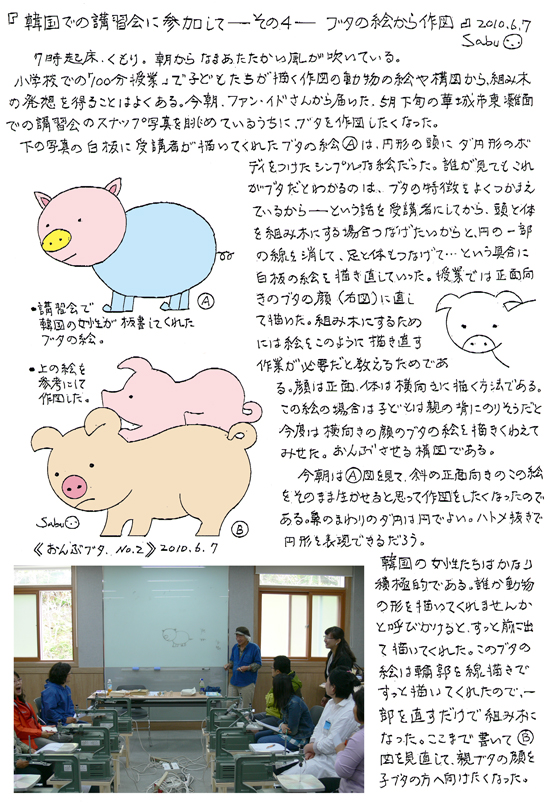 『韓国での講習会に参加して―その4― ブタの絵から作図』2010.6.7
Sabu
7時起床.くもり。朝からなまあたたかい風が吹いている。
小学校での「100分授業」で子どもたちが描く作図の動物の絵や構図から、組み木
の発想を得ることはよくある。今朝、ファン・イドさんから届いた、5月下旬の華城市東灘面
での講習会のスナップ写真を眺めているうちに、ブタを作図したくなった。
下の写真の白板に受講者が描いてくれたブタの絵Ⓐは、円形の頭にダ円形のボ
ディをつけたシンプルな絵だった。誰が見てもこれ
がブタだとわかるのは、ブタの特徴をよくつかまえ
ているから――という話を受講者にしてから、頭と体
を組み木にする場合つなげたいからと、円の一部
の線を消して、足と体もつなげて…という具合に
白板の絵を描き直していった。授業では正面向
きのブタの顔(右図)に直し
て描いた。組み木にするため
には絵をこのように描き直す
作業が必要だと教えるためであ
る。顔は正面、体は横向きに描く方法である。
この絵の場合は子どもは親の背にのりそうだと
今度は横向きの顔のブタの絵を描きくわえて
みせた。おんぶさせる構図である。
今朝はⒶ図を見て、斜の正面向きのこの絵
をそのまま生かせると思って作図をしたくなったので
ある。鼻のまわりのダ円は円でよい。ハトメ抜きで
円形を表現できるだろう。
韓国の女性たちはかなり
積極的である。誰か動物
の形を描いてくれませんか
と呼びかけると、すっと前に出
て描いてくれた。このブタの
絵は輪郭を線描きで
すっと描いてくれたので、一
部を直すだけで組み木に
なった。ここまで書いてⒷ
図を見直して、親ブタの顔を
子ブタの方へ向けたくなった。
Ⓐ
•講習会で
韓国の女性が板書してくれた
ブタの絵。
•上の絵を
参考にして
作図した。
Sabu
Ⓑ
《おんぶブタ. No.2》2010.6.7